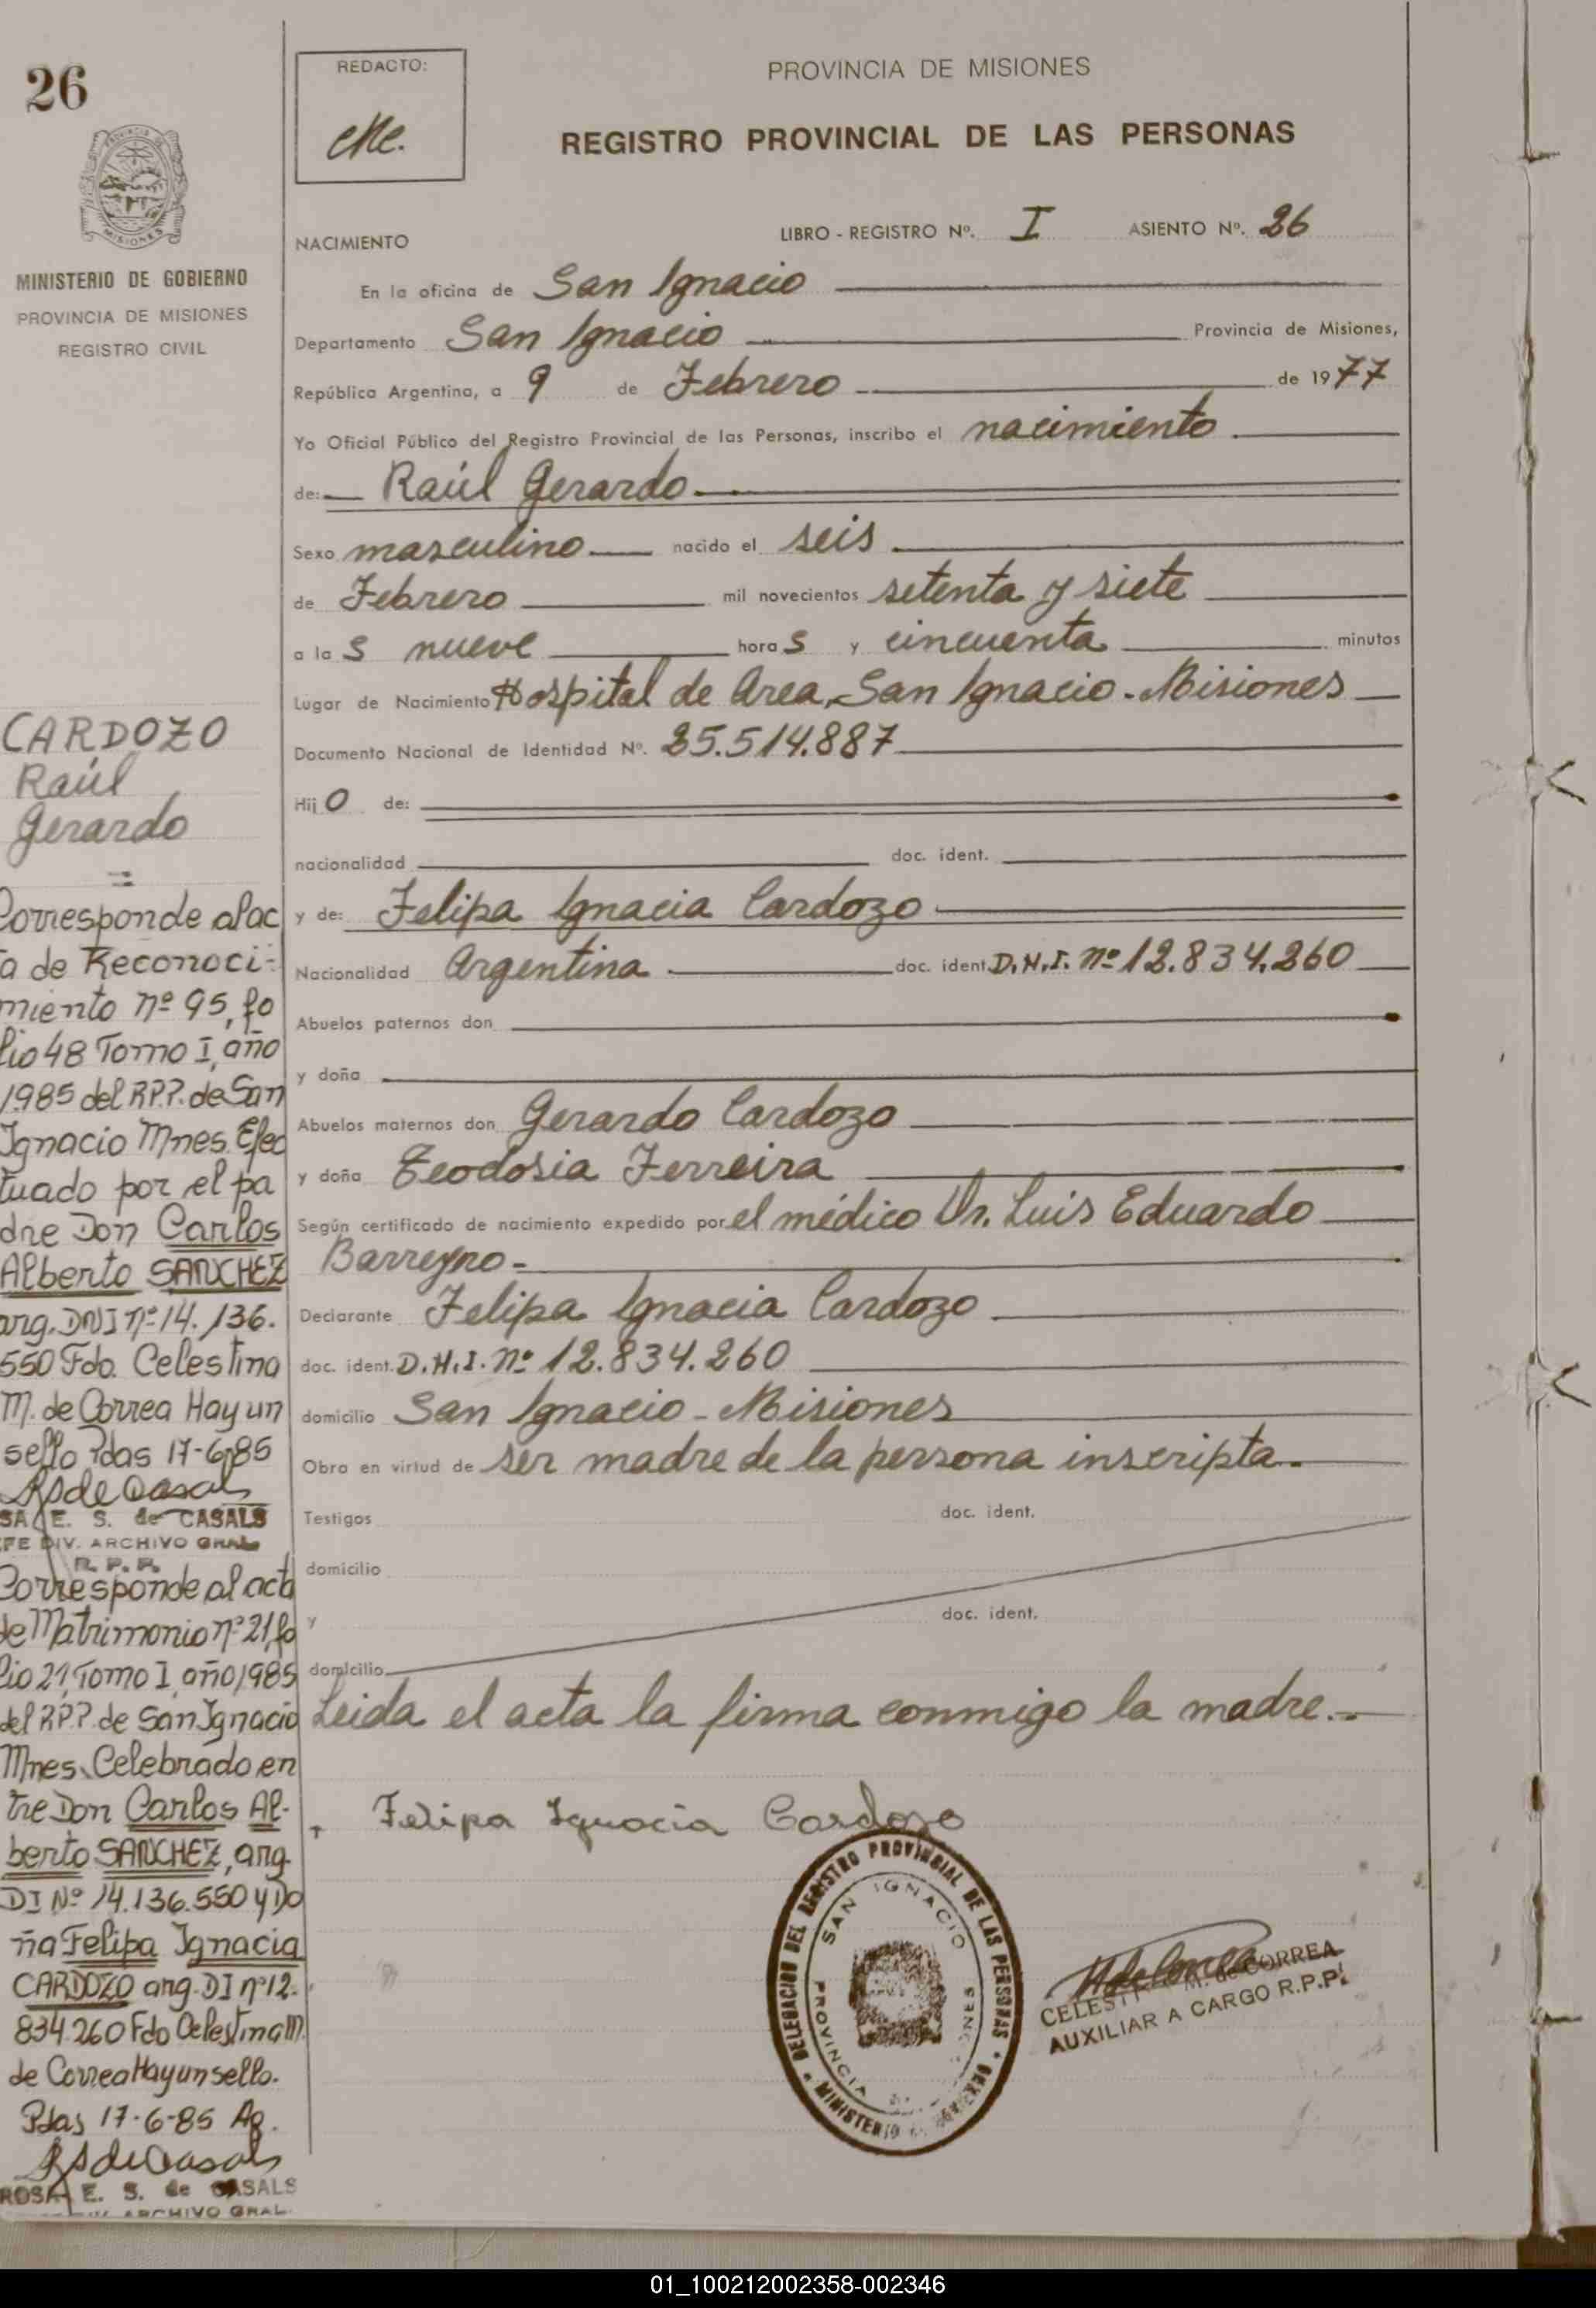 26
REDACTO:
PROVINCIA DE MISIONES
REGISTRO PROVINCIAL DE LAS PERSONAS
MINISTERIO DE GOBIERNO
PROVINCIA DE MISIONES
REGISTRO CIVIL
NACIMIENTO LIBRO - REGISTRO Nº. I ASIENTO Nº. 26
En la oficina de San Ignacio
Departamento San Ignacio Provincia de Misiones,
República Argentina, a 9 de Febrero de 1977
Yo Oficial Público del Registro Provincial de las Personas, inscribo el nacimiento
de: Raúl Gerardo
Sexo masculino nacido el seis
de Febrero mil novecientos setenta y siete
a las nueve horas y cincuenta minutos
Lugar de Nacimiento Hospital de Area, San Ignacio - Misiones
Documento Nacional de Identidad Nº. 25.514.887
Hijo de:
nacionalidad doc. ident.
y de: Felipa Ignacia Cardozo
Nacionalidad Argentina doc. ident. D.N.I. nº 12.834.260
Abuelos paternos don
y doña
Abuelos maternos don Gerardo Cardozo
y doña Teodosia Ferreira
Según certificado de nacimiento expedido por el médico Dr. Luis Eduardo
Barreyro -
Declarante Felipa Ignacia Cardozo
doc. ident. D.N.I. nº 12.834.260
domicilio San Ignacio - Misiones
Obra en virtud de ser madre de la persona inscripta.
Testigos doc. ident.
domicilio
y doc. ident.
domicilio
Leida el acta la firma conmigo la madre.-
Felipa Ignacia Cardozo
DELEGACION DEL REGISTRO PROVINCIAL DE LAS PERSONAS
SAN IGNACIO
PROVINCIA
MINISTERIO
CELESTI M. de CORREA
AUXILIAR A CARGO R.P.P.
CARDOZO
Raúl
Gerardo
=
Corresponde al ac
ta de Reconoci-
miento nº 95, fo
lio 48 Tomo I, año
1985 del R.P.P. de San
Ignacio Mnes. Efec
tuado por el pa
dre Don Carlos
Alberto SANCHEZ
arg. DNI nº 14.136.
550 Fdo. Celestina
M. de Correa Hay un
sello Pdas 17-6-85
RSdeCasals
SA E. S. de CASALS
FE DIV. ARCHIVO GRAL
R. P. P.
Corresponde al acta
de Matrimonio nº 21, fo
lio 21, Tomo I, año 1985
del R.P.P. de San Ignacio
Mnes. Celebrado en
tre Don Carlos Al-
berto SANCHEZ, arg.
DI Nº 14.136.550 y Do
ña Felipa Ignacia
CARDOZO arg. DI nº 12.
834.260 Fdo Celestina M.
de Correa Hay un sello.
Pdas 17-6-85 Ag.
RSdeCasals
ROSA E. S. de CASALS
DIV. ARCHIVO GRAL.
01_100212002358-002346